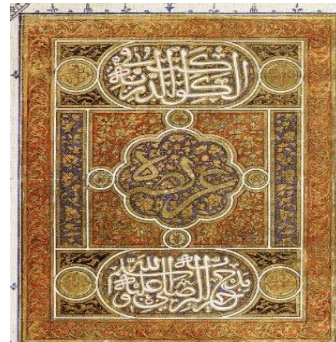 الكواكب الدرية
في مدح خير البرية صلى الله عليه وسلم